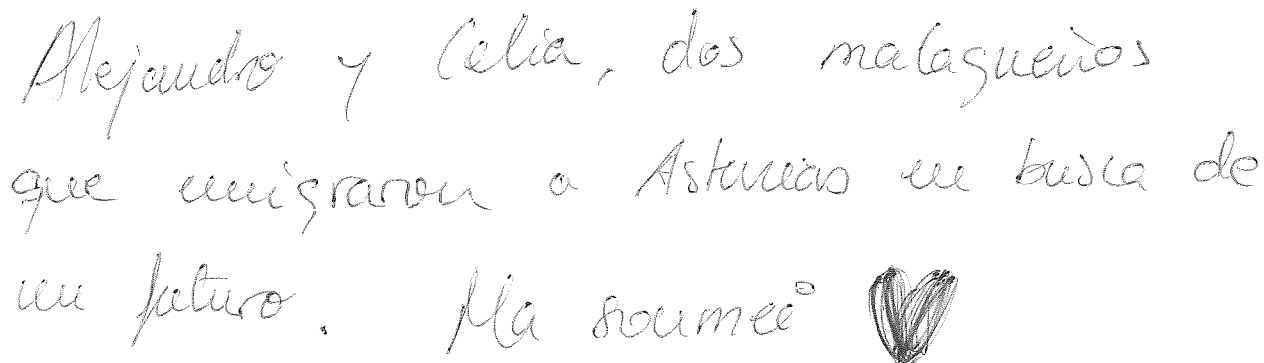 Alejandro y Celia, dos malagueños
que emigraron a Asturias en busca de
un futuro. Ma